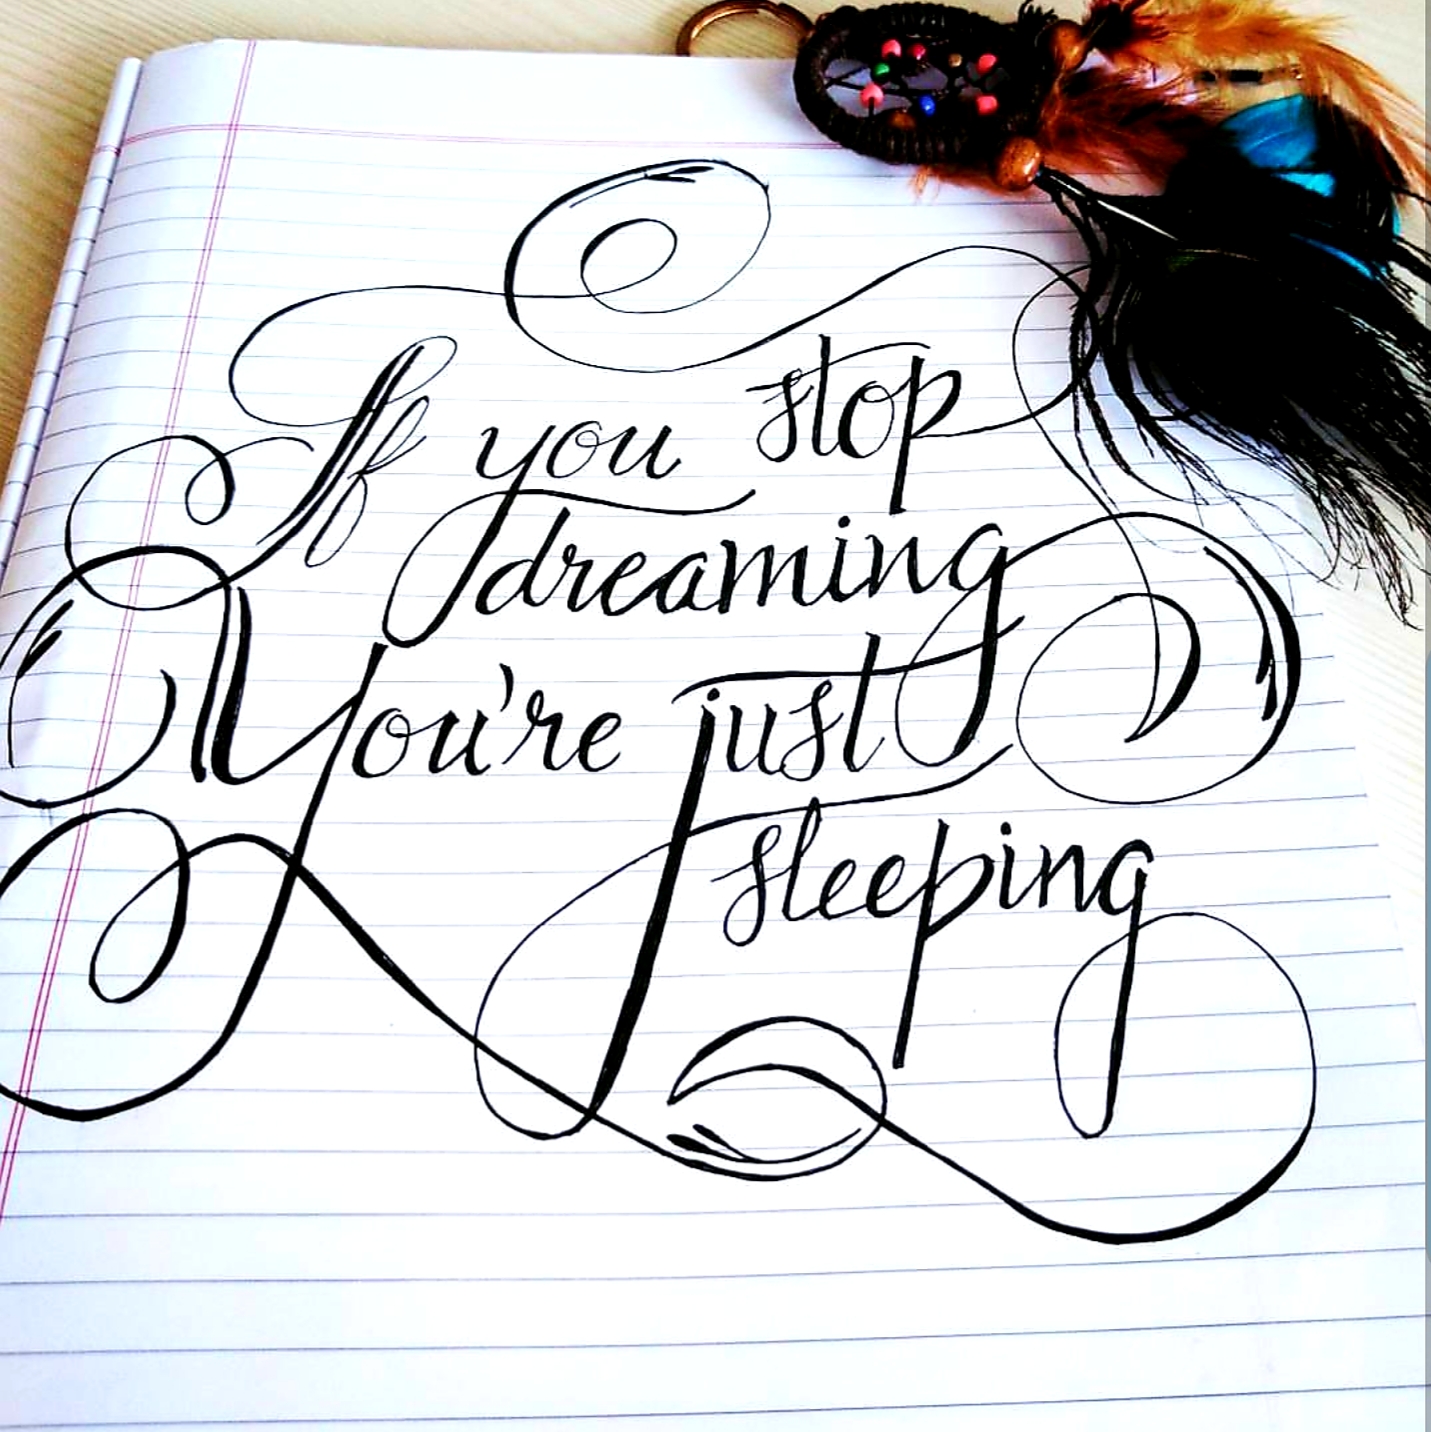 If you stop
dreaming
You're just
sleeping